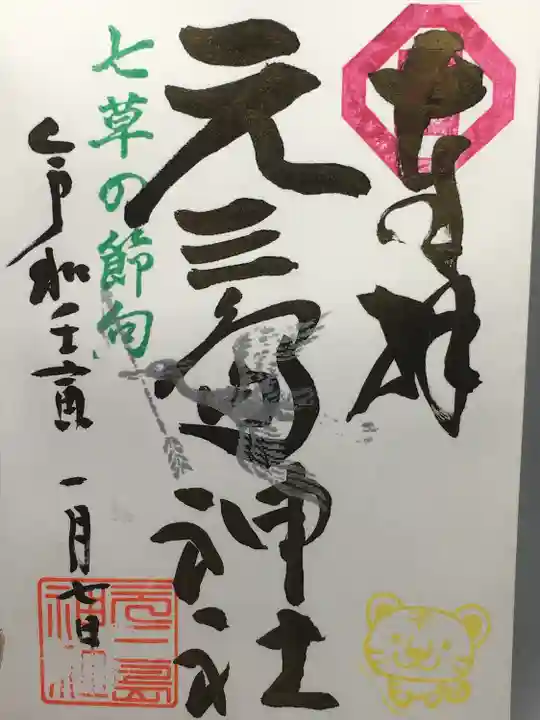 奉拝
元三島神社
七草の節句
令和壬寅 一月七日
元三島
神社